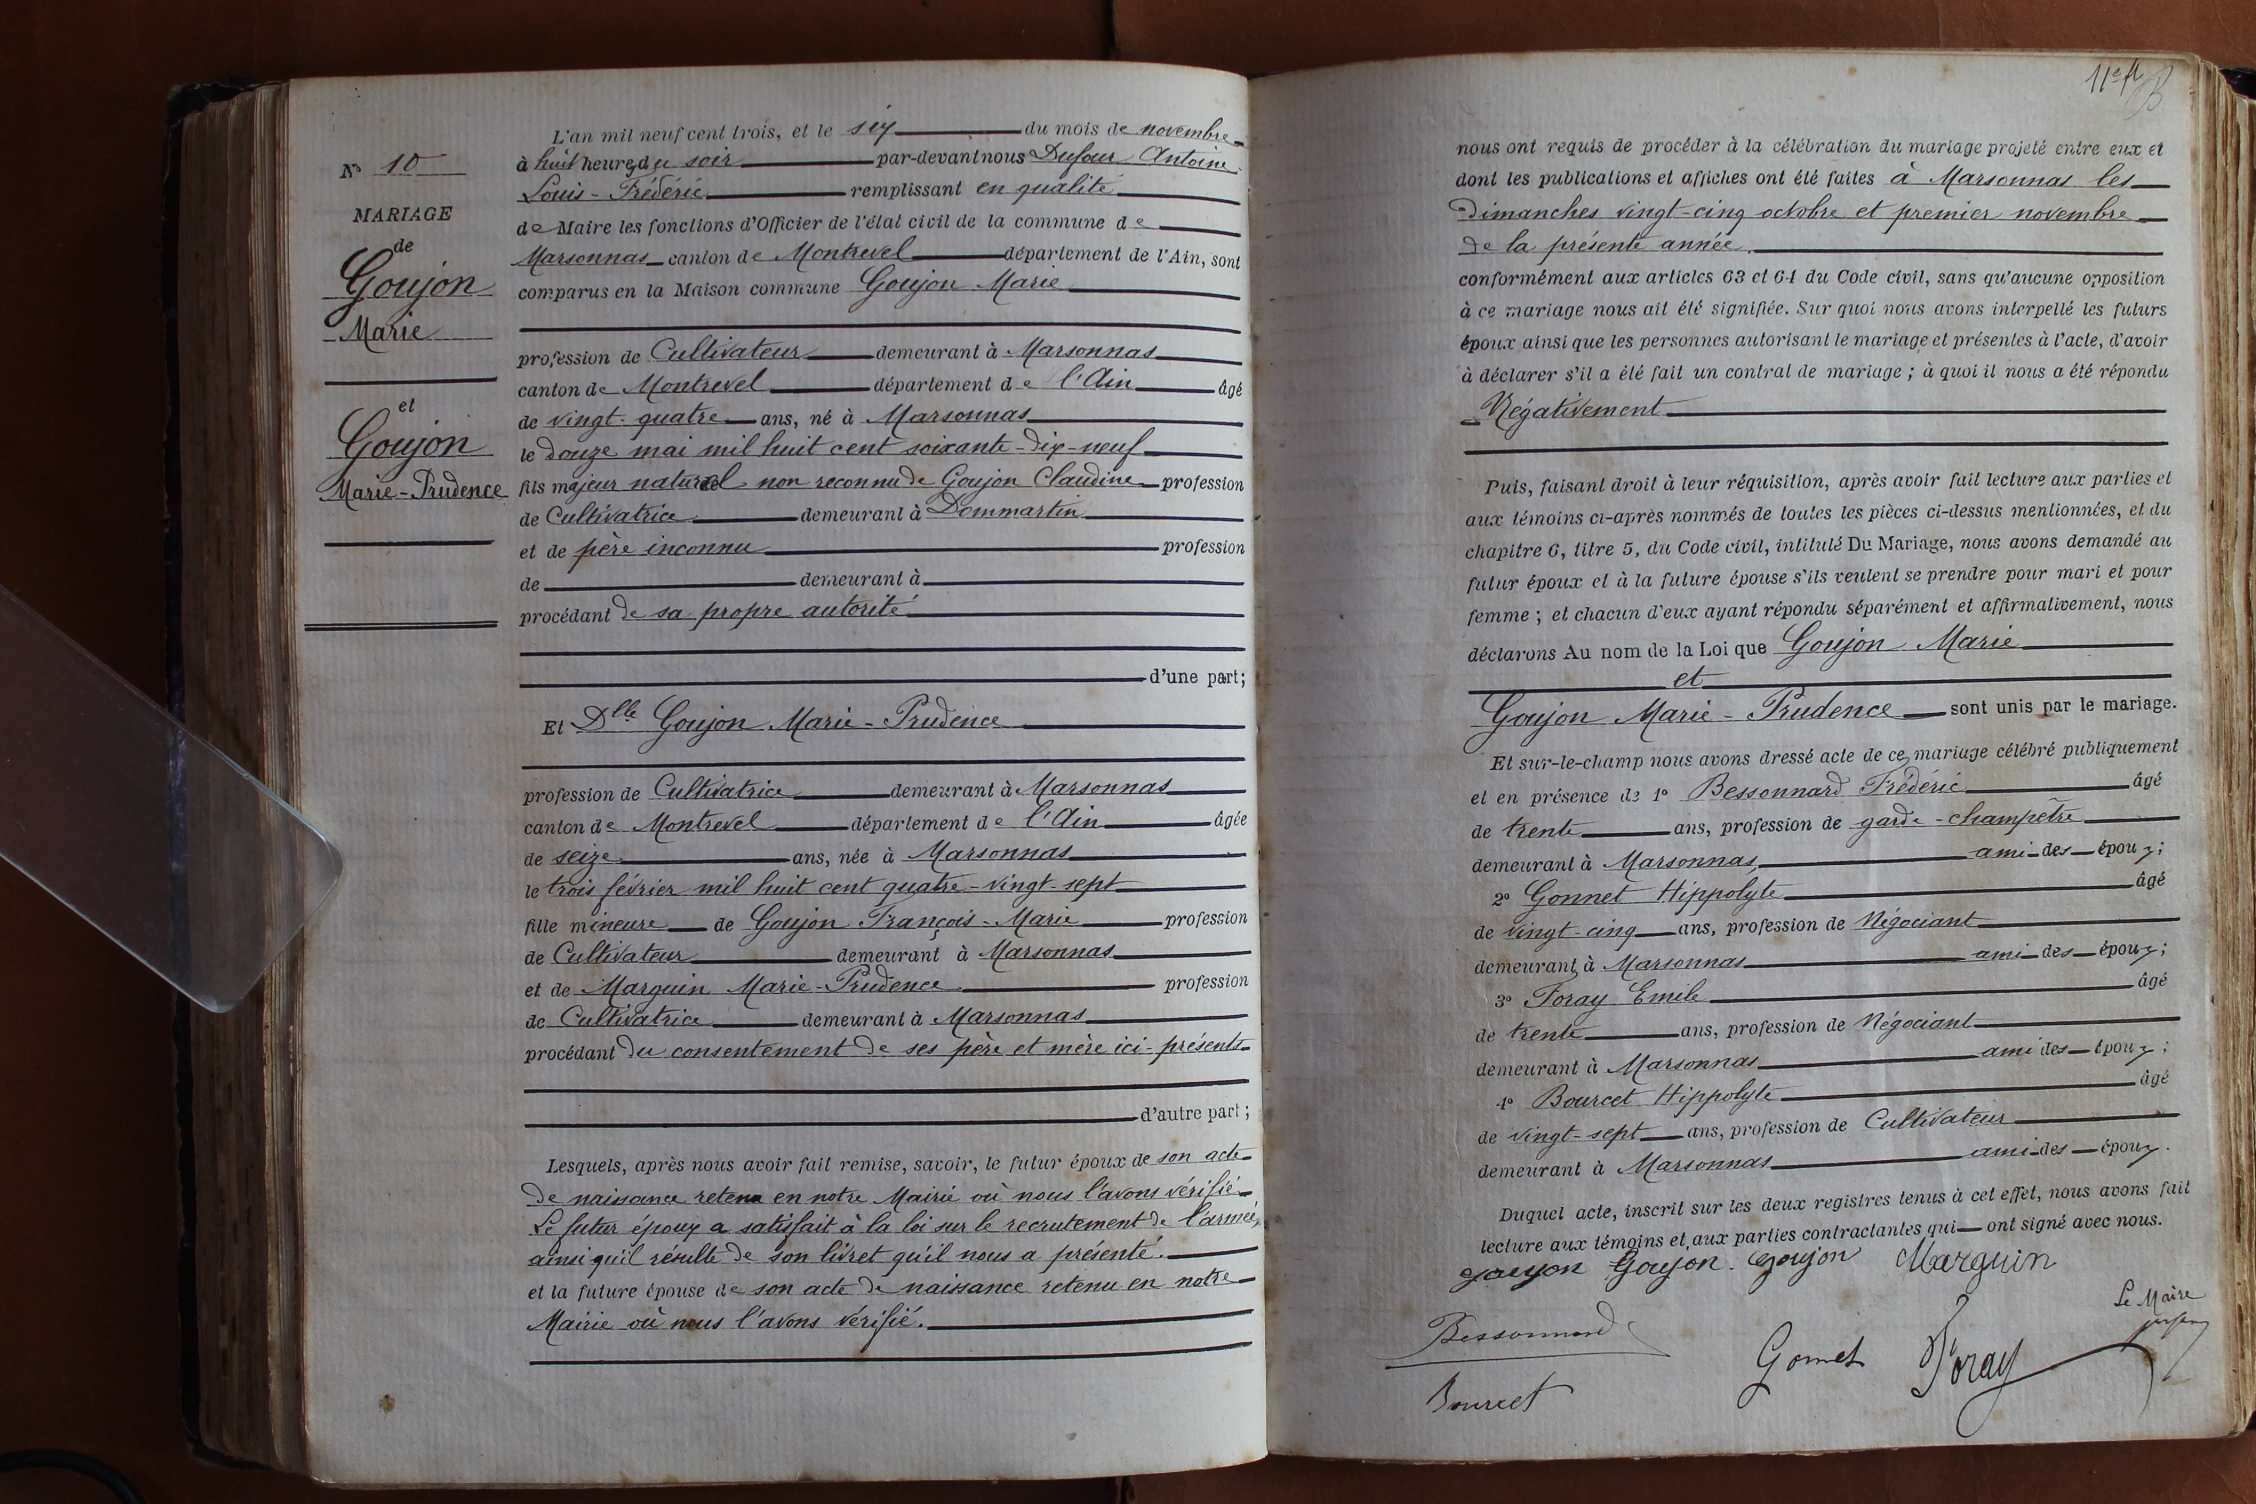 Nº 10
MARIAGE
de
Goujon
Marie
et
Goujon
Marie-Prudence
L'an mil neuf cent trois, et le six du mois de novembre
à huit heures du soir par-devant nous Dufour Antoine
Louis-Frédéric remplissant en qualité
de Maire les fonctions d'Officier de l'état civil de la commune de
Marsonnas canton de Montrevel département de l'Ain, sont
comparus en la Maison commune Goujon Marie
profession de Cultivateur demeurant à Marsonnas
canton de Montrevel département de l'Ain âgé
de vingt-quatre ans, né à Marsonnas
le douze mai mil huit cent soixante-dix-neuf
fils majeur naturel non reconnu de Goujon Claudine profession
de Cultivatrice demeurant à Dommartin
et de père inconnu profession
de demeurant à
procédant de sa propre autorité
d'une part;
Et Dlle Goujon Marie-Prudence
profession de Cultivatrice demeurant à Marsonnas
canton de Montrevel département de l'Ain âgée
de seize ans, née à Marsonnas
le trois février mil huit cent quatre-vingt-sept
fille mineure de Goujon François-Marie profession
de Cultivateur demeurant à Marsonnas
et de Marguin Marie-Prudence profession
de Cultivatrice demeurant à Marsonnas
procédant du consentement de ses père et mère ici-présents
d'autre part;
Lesquels, après nous avoir fait remise, savoir, le futur époux de son acte
de naissance retenu en notre Mairie où nous l'avons vérifié
Le futur époux a satisfait à la loi sur le recrutement de l'armée,
ainsi qu'il résulte de son livret qu'il nous a présenté.
et la future épouse de son acte de naissance retenu en notre
Mairie où nous l'avons vérifié.
11e
nous ont requis de procéder à la célébration du mariage projeté entre eux et
dont les publications et affiches ont été faites à Marsonnas les
Dimanches vingt-cinq octobre et premier novembre
de la présente année.
conformément aux articles 63 et 64 du Code civil, sans qu'aucune opposition
à ce mariage nous ait été signifiée. Sur quoi nous avons interpellé les futurs
époux ainsi que les personnes autorisant le mariage et présentes à l'acte, d'avoir
à déclarer s'il a été fait un contrat de mariage; à quoi il nous a été répondu
Négativement
Puis, faisant droit à leur réquisition, après avoir fait lecture aux parties et
aux témoins ci-après nommés de toutes les pièces ci-dessus mentionnées, et du
chapitre 6, titre 5, du Code civil, intitulé Du Mariage, nous avons demandé au
futur époux et à la future épouse s'ils veulent se prendre pour mari et pour
femme; et chacun d'eux ayant répondu séparément et affirmativement, nous
déclarons Au nom de la Loi que Goujon Marie
et
Goujon Marie-Prudence sont unis par le mariage.
Et sur-le-champ nous avons dressé acte de ce mariage célébré publiquement
et en présence de 1º Bessonnard Frédéric âgé
de trente ans, profession de garde-champêtre
demeurant à Marsonnas, ami des époux;
2º Gonnet Hippolyte âgé
de vingt-cinq ans, profession de Négociant
demeurant à Marsonnas ami des époux;
3º Foray Emile âgé
de trente ans, profession de Négociant
demeurant à Marsonnas ami des époux;
4º Bourcet Hippolyte âgé
de vingt-sept ans, profession de Cultivateur
demeurant à Marsonnas ami des époux.
Duquel acte, inscrit sur les deux registres tenus à cet effet, nous avons fait
lecture aux témoins et aux parties contractantes qui ont signé avec nous.
goujon Goujon. Goujon Marguin
Le Maire
Bessonnard
Gonnet Foray
Bourcet